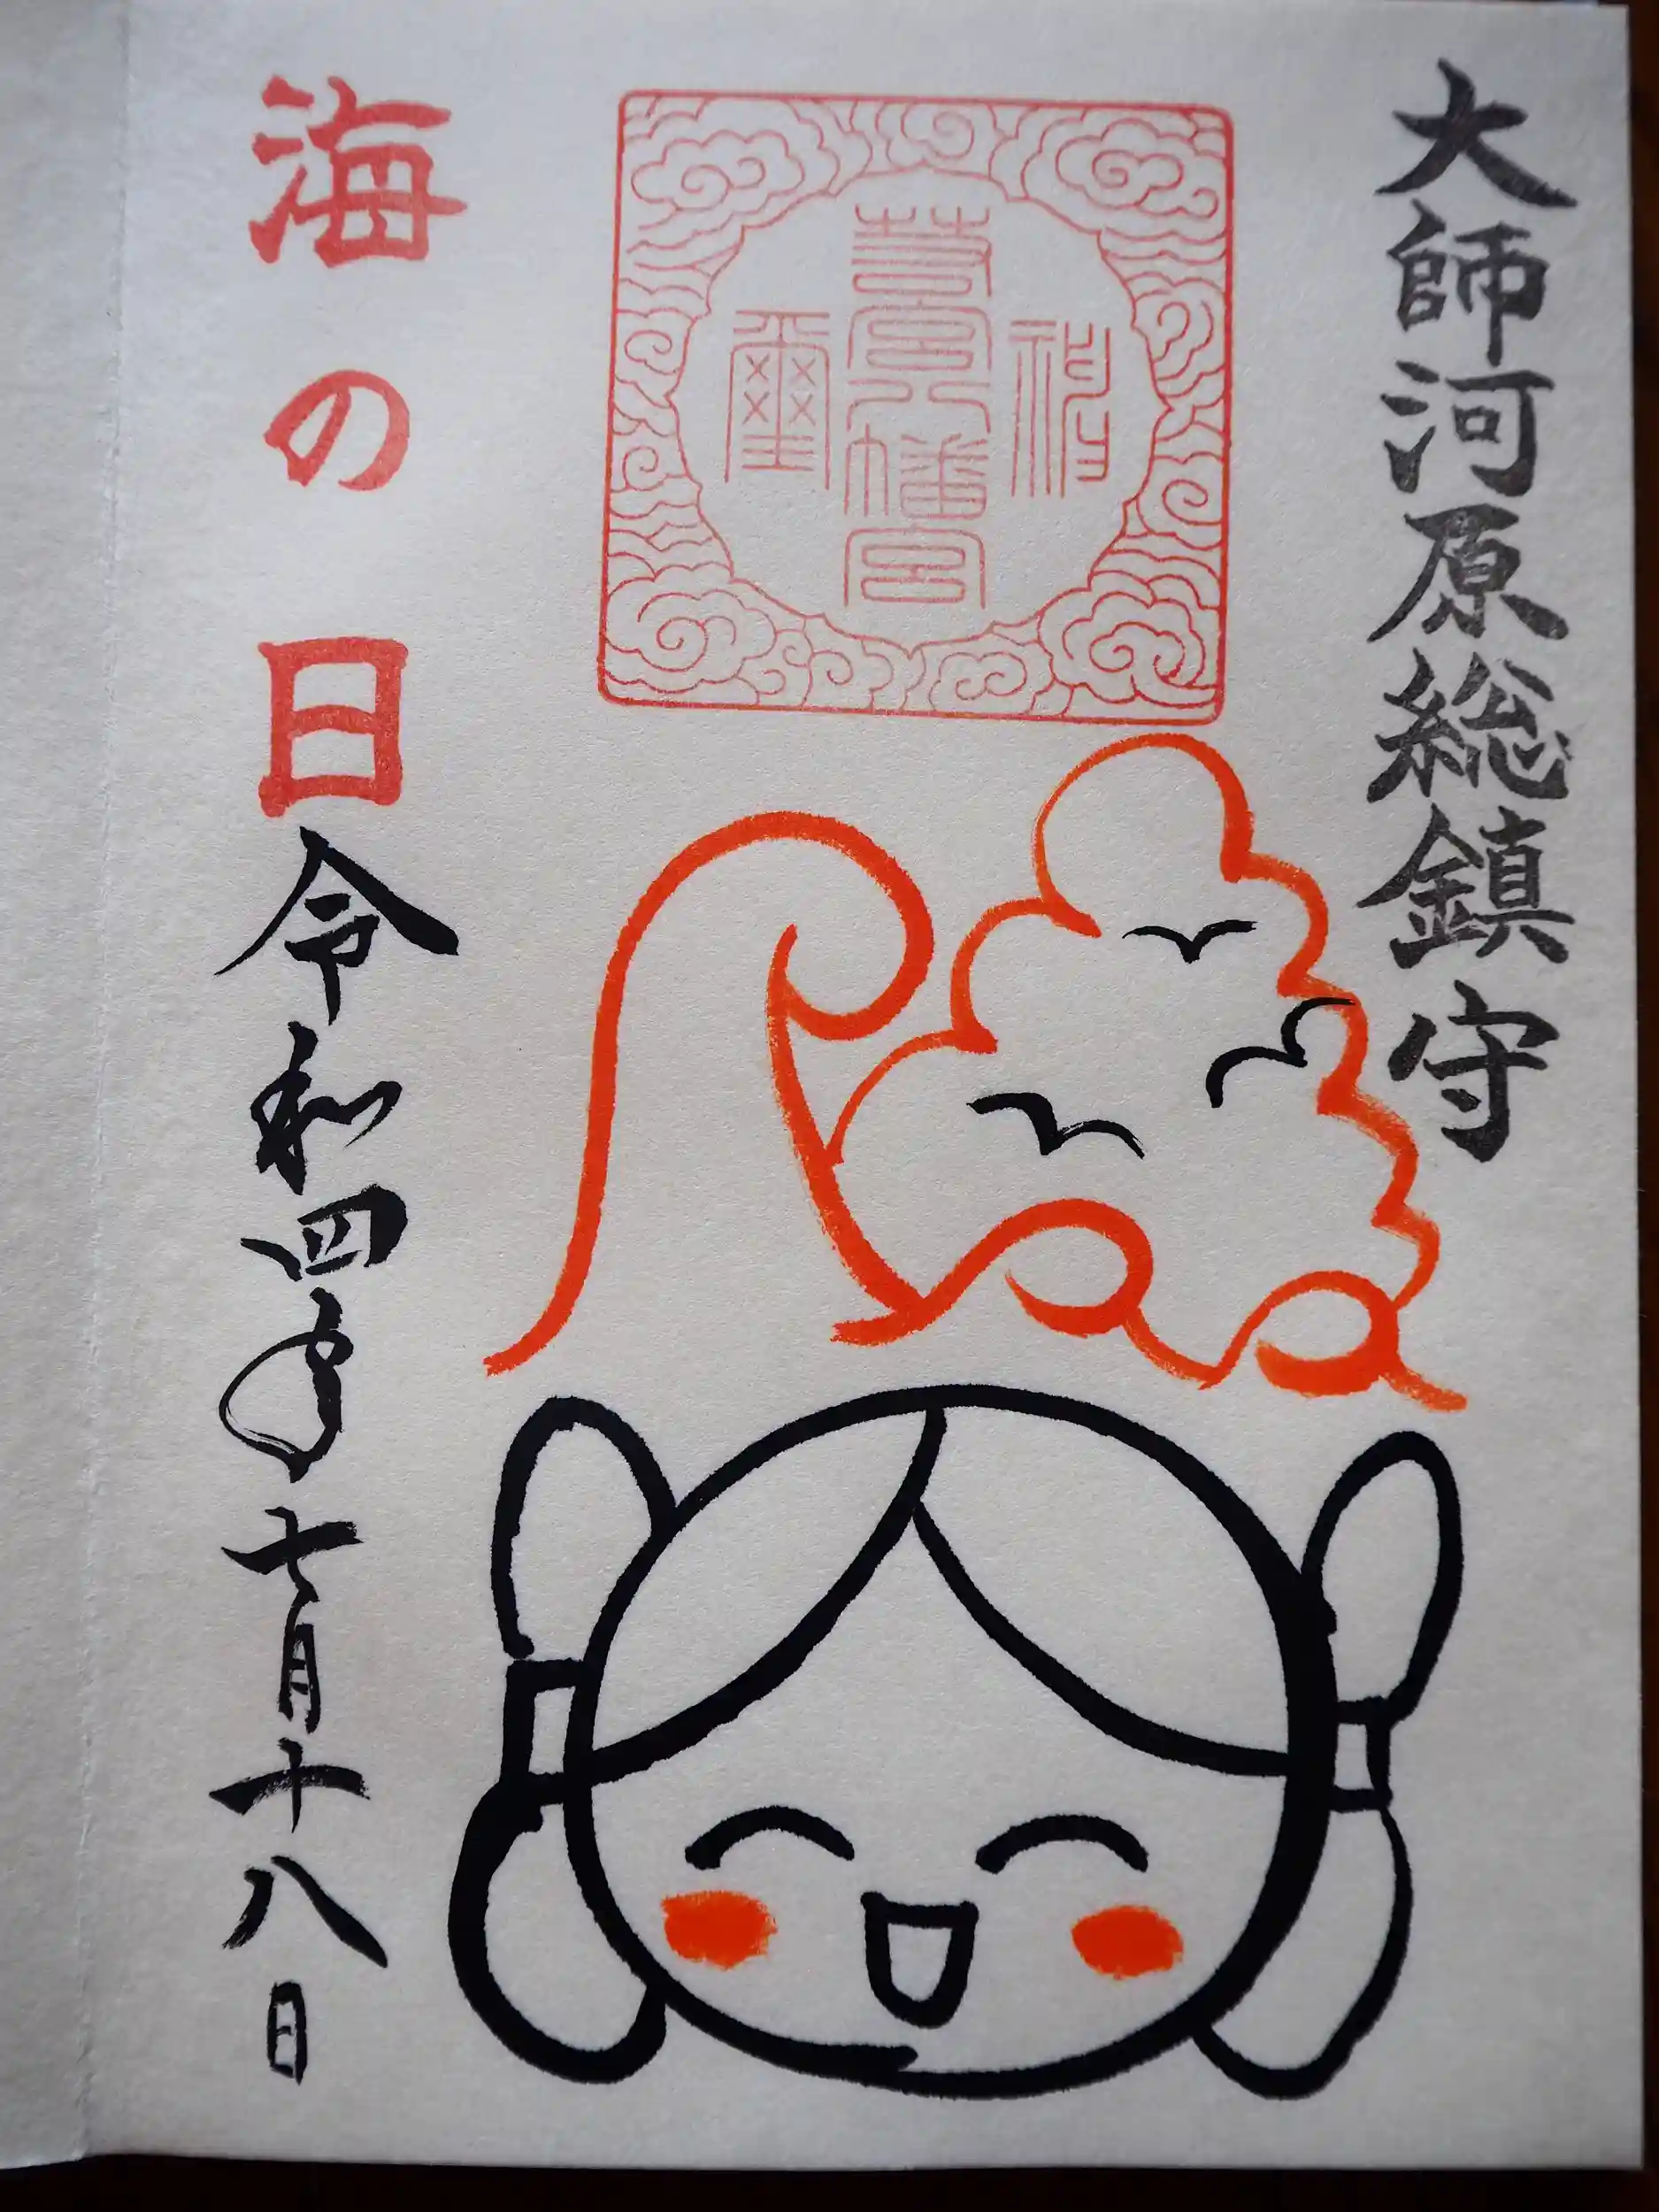 大師河原総鎮守
若宮八幡宮
海の日
令和四年七月十八日